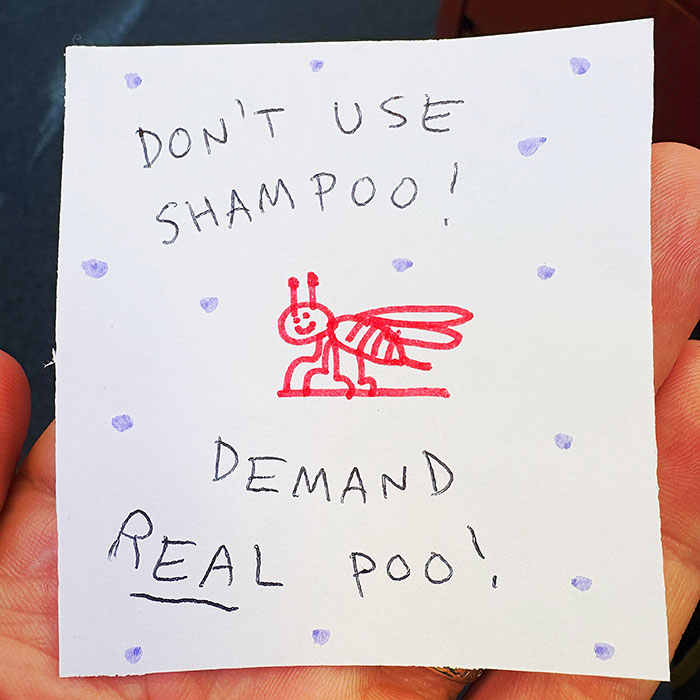 DON'T USE
SHAMPOO!
DEMAND
REAL POO!